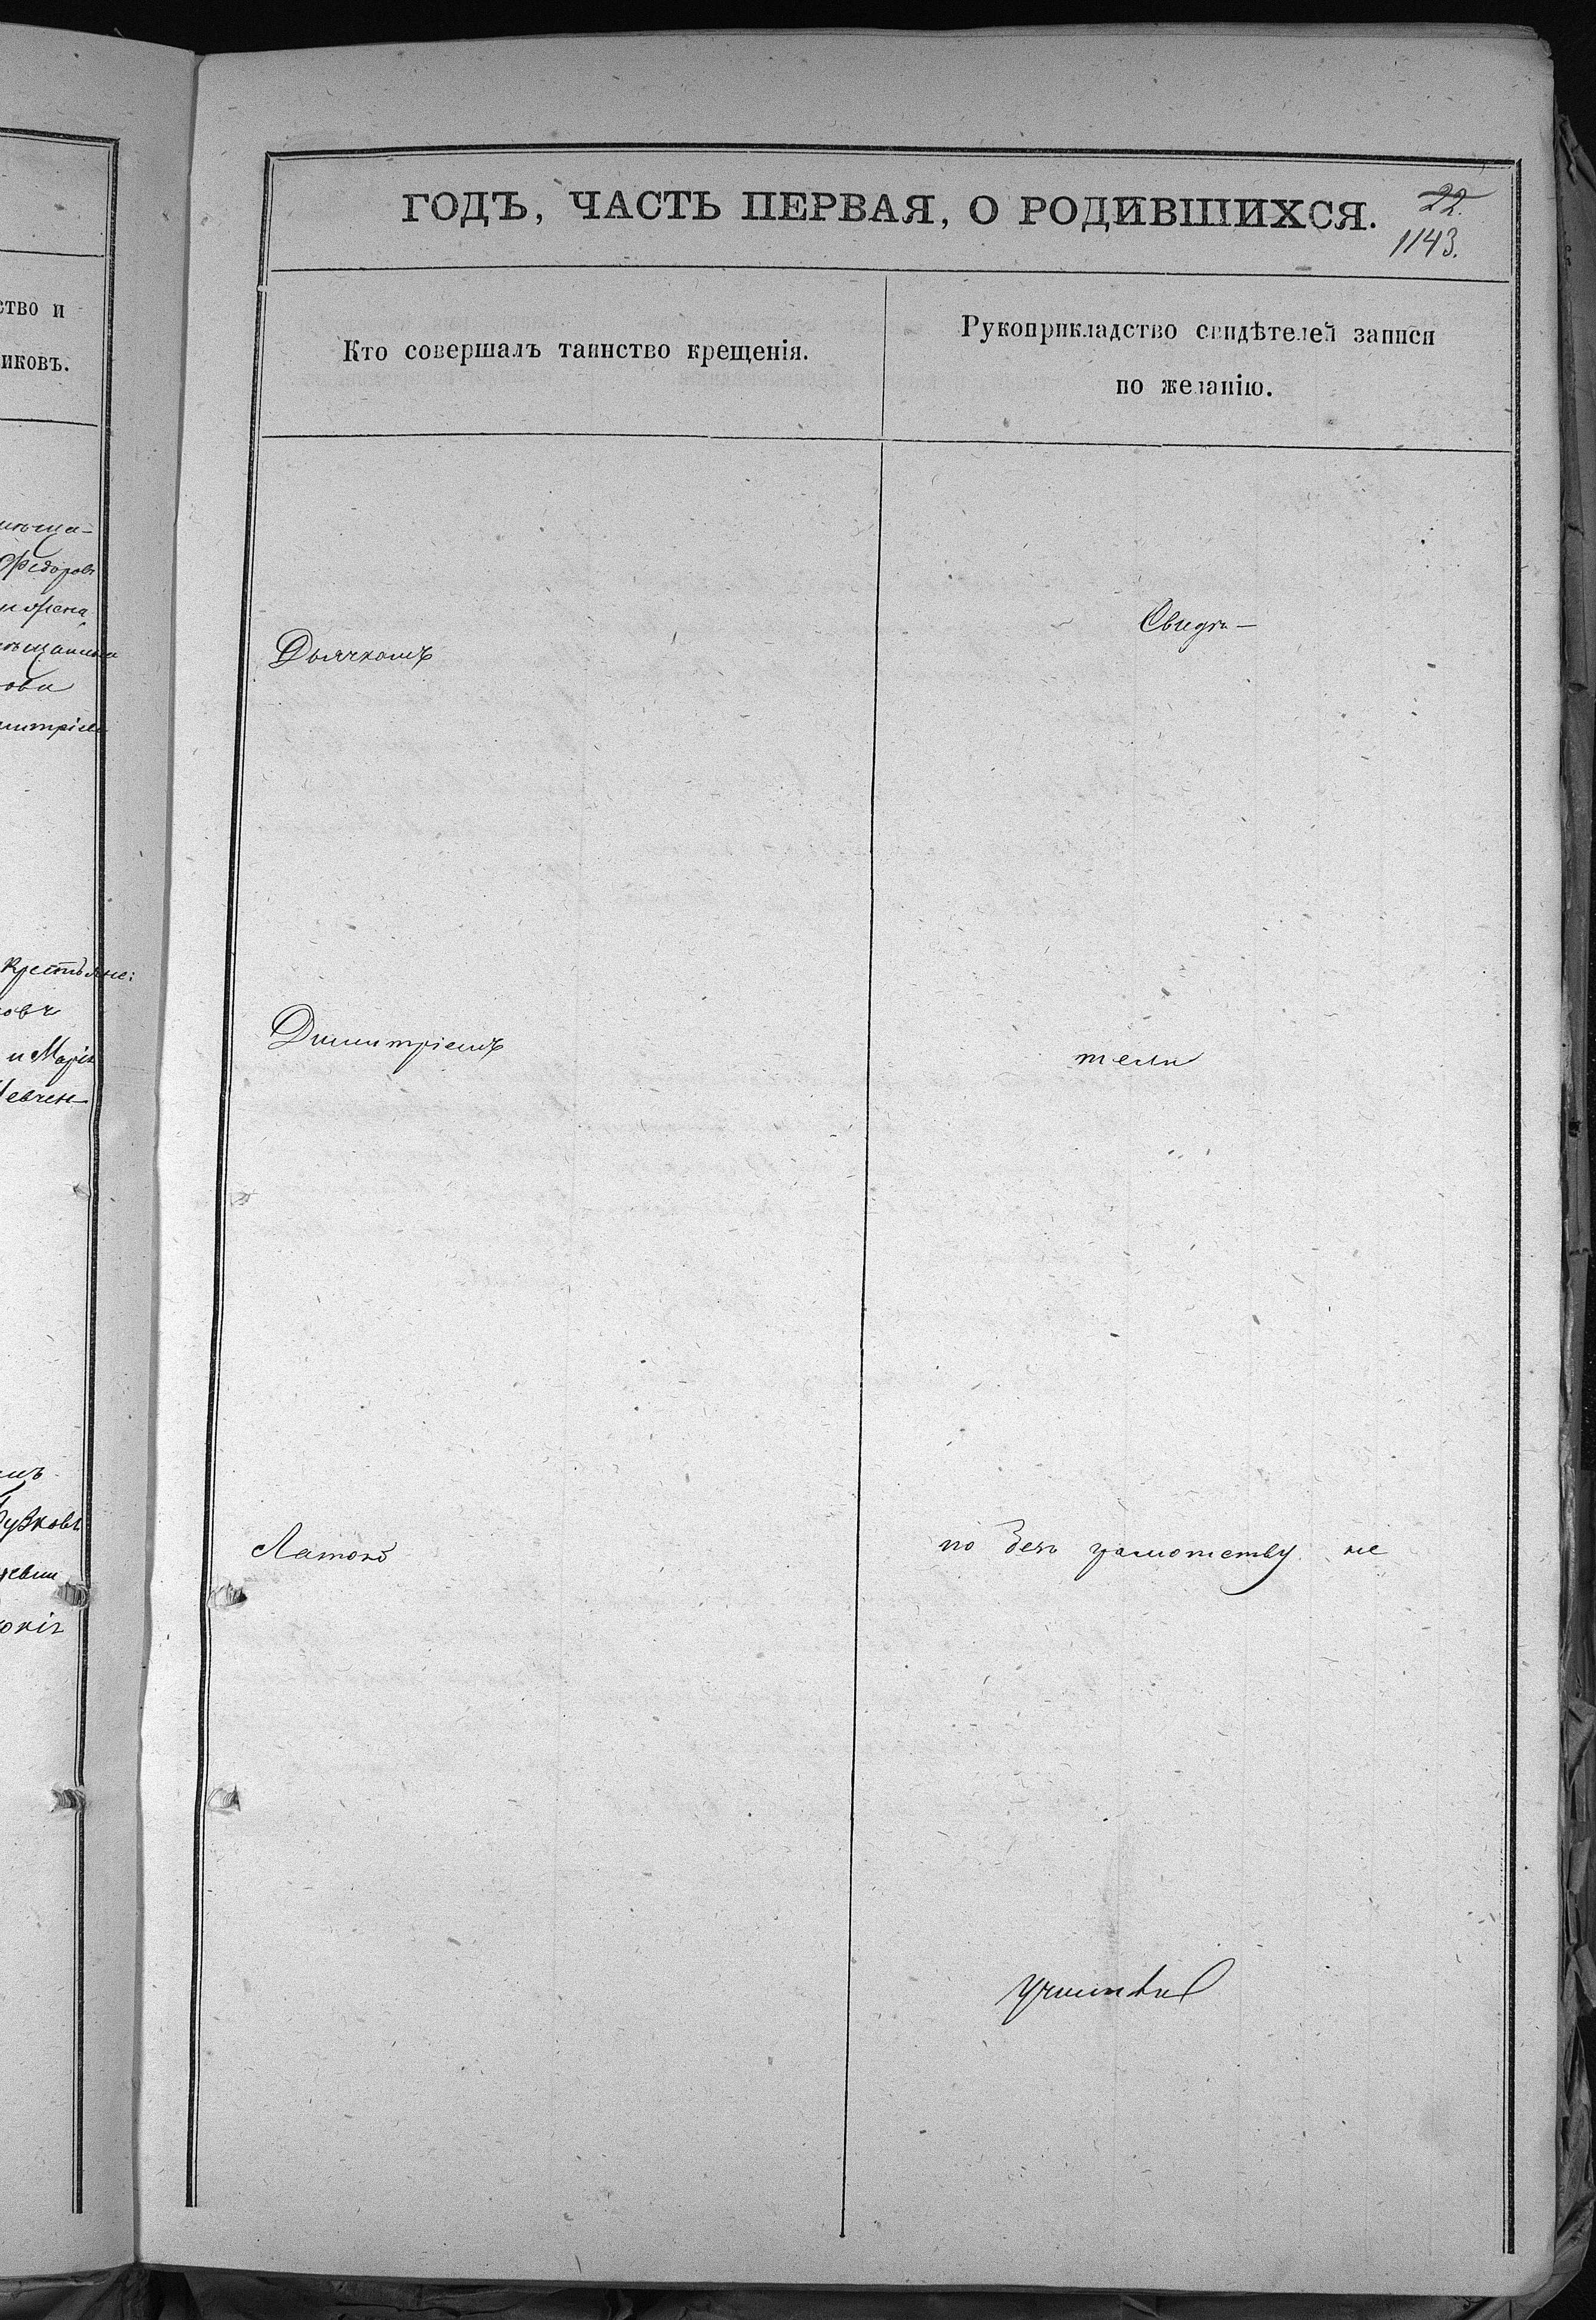 ство и
иковъ.
Федоровъ
и жена
ова
Крестьяне:
овъ
и Марія
евчен-
ГОДЪ, ЧАСТЬ ПЕРВАЯ, О РОДИВШИХСЯ.
22.
1143.
Кто совершалъ таинство крещенія.
Рукоприкладство свидѣтелей записи
по желанію.
Дьячкомъ
Свидѣ-
Димитріемъ
тели
по безъ грамотству не